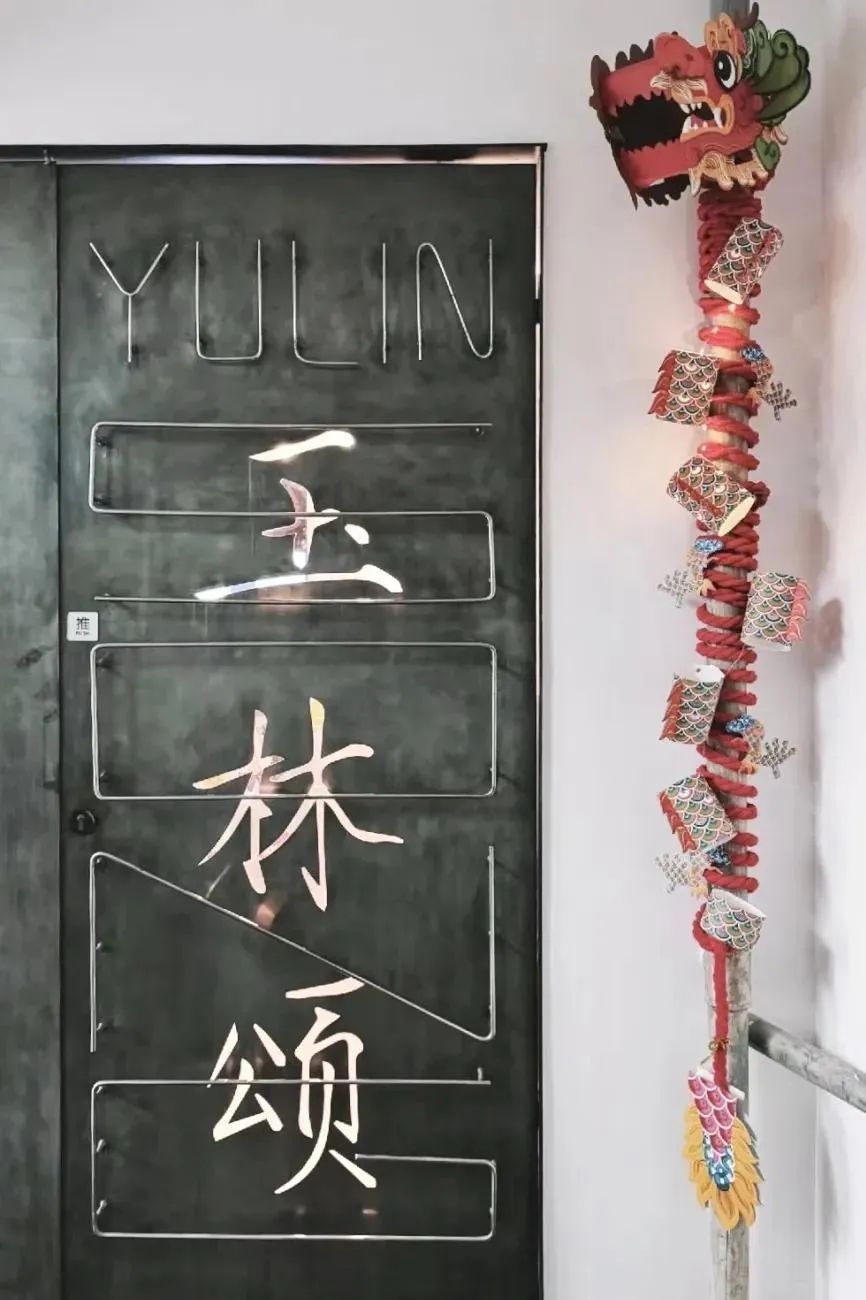 YULIN
SONG
玉林颂
推